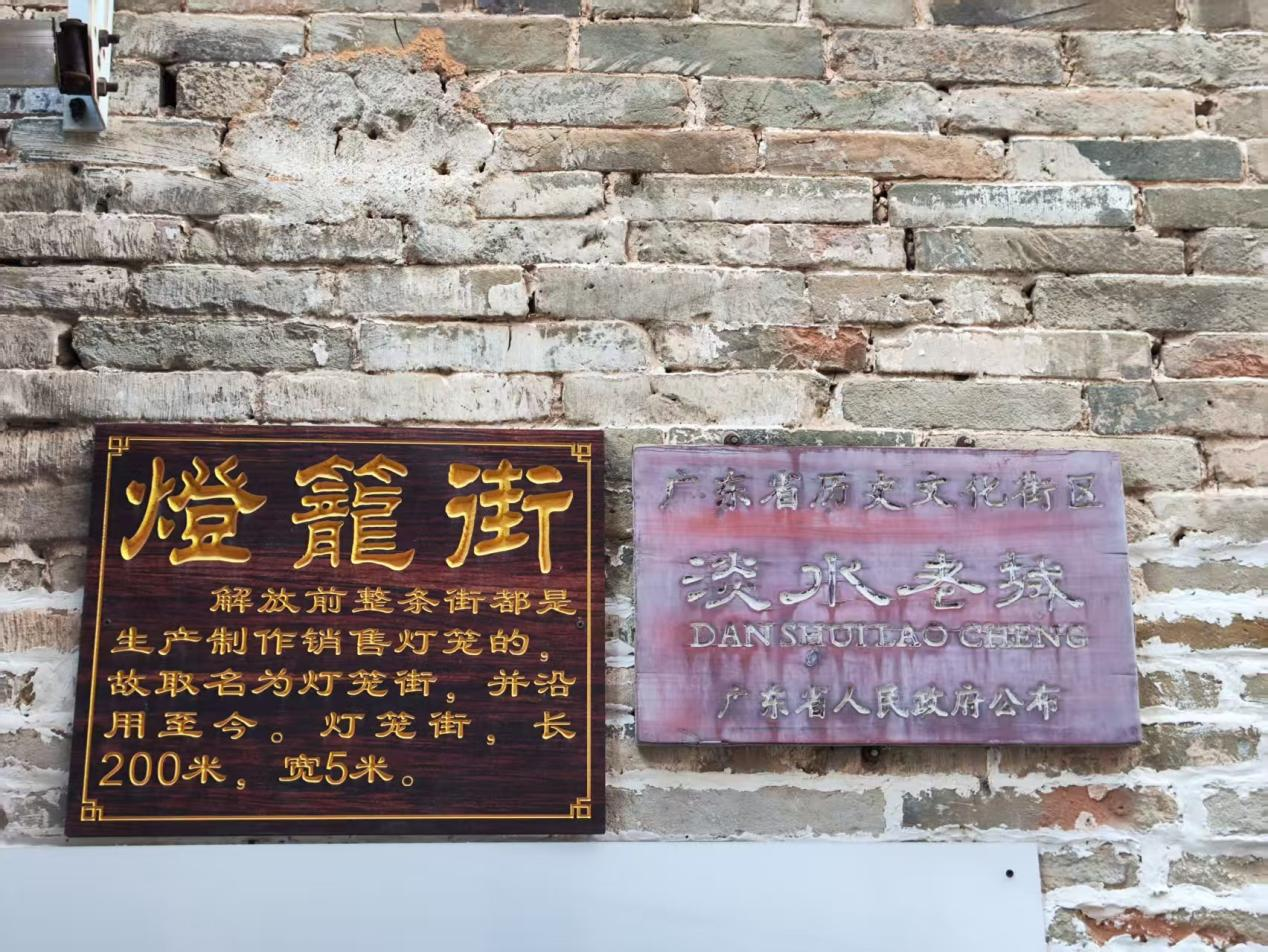 燈籠街
解放前整条街都是
生产制作销售灯笼的，
故取名为灯笼街，并沿
用至今。灯笼街，长
200米，宽5米。
广东省历史文化街区
淡水老城
DAN SHUI LAO CHENG
广东省人民政府公布